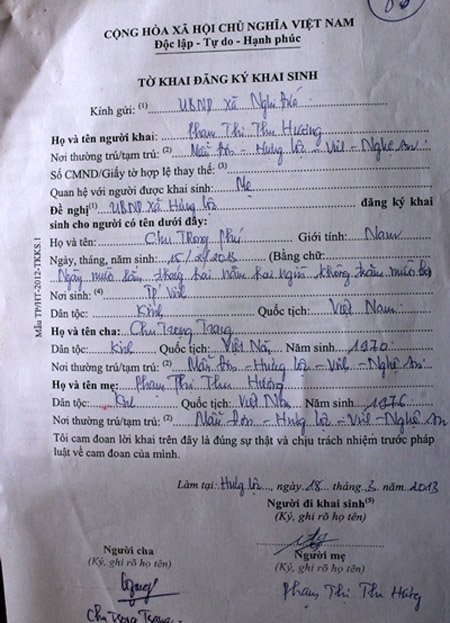 CỘNG HÒA XÃ HỘI CHỦ NGHĨA VIỆT NAM
Độc lập - Tự do - Hạnh phúc
TỜ KHAI ĐĂNG KÝ KHAI SINH
Kính gửi: (1) UBND xã Nghi
Họ và tên người khai: Phạm Thị Thu Hương
Nơi thường trú/tạm trú: (2) Mẫu Đơn - Hưng Lộc - Vinh - Nghệ An
Số CMND/Giấy tờ hợp lệ thay thế: (3)
Quan hệ với người được khai sinh: Mẹ
Đề nghị(1) UBND xã Hưng Lộc đăng ký khai
sinh cho người có tên dưới đây:
Họ và tên: Chu Trọng Phú Giới tính: Nam
Ngày, tháng, năm sinh: 15/2/2013 (Bằng chữ:
Ngày mười lăm tháng hai năm hai nghìn không trăm mười ba
Nơi sinh: (4) TP Vinh
Dân tộc: Kinh Quốc tịch: Việt Nam
Họ và tên cha: Chu Trọng Trang
Dân tộc: Kinh Quốc tịch: Việt Nam Năm sinh 1970
Nơi thường trú/tạm trú: (2) Mẫu Đơn - Hưng Lộc - Vinh - Nghệ An
Họ và tên mẹ: Phạm Thị Thu Hương
Dân tộc: Kinh Quốc tịch: Việt Nam Năm sinh: 1976
Nơi thường trú/tạm trú: (2) Mẫu Đơn - Hưng Lộc - Vinh - Nghệ An
Tôi cam đoan lời khai trên đây là đúng sự thật và chịu trách nhiệm trước pháp
luật về cam đoan của mình.
Làm tại: Hưng Lộc, ngày 18 tháng 3 năm 2013
Người đi khai sinh(5)
(Ký, ghi rõ họ tên)
Người cha
(Ký, ghi rõ họ tên)
Chu Trọng Trang
Người mẹ
(Ký, ghi rõ họ tên)
Phạm Thị Thu Hương
Mẫu TP/HT-2012-TKKS.1